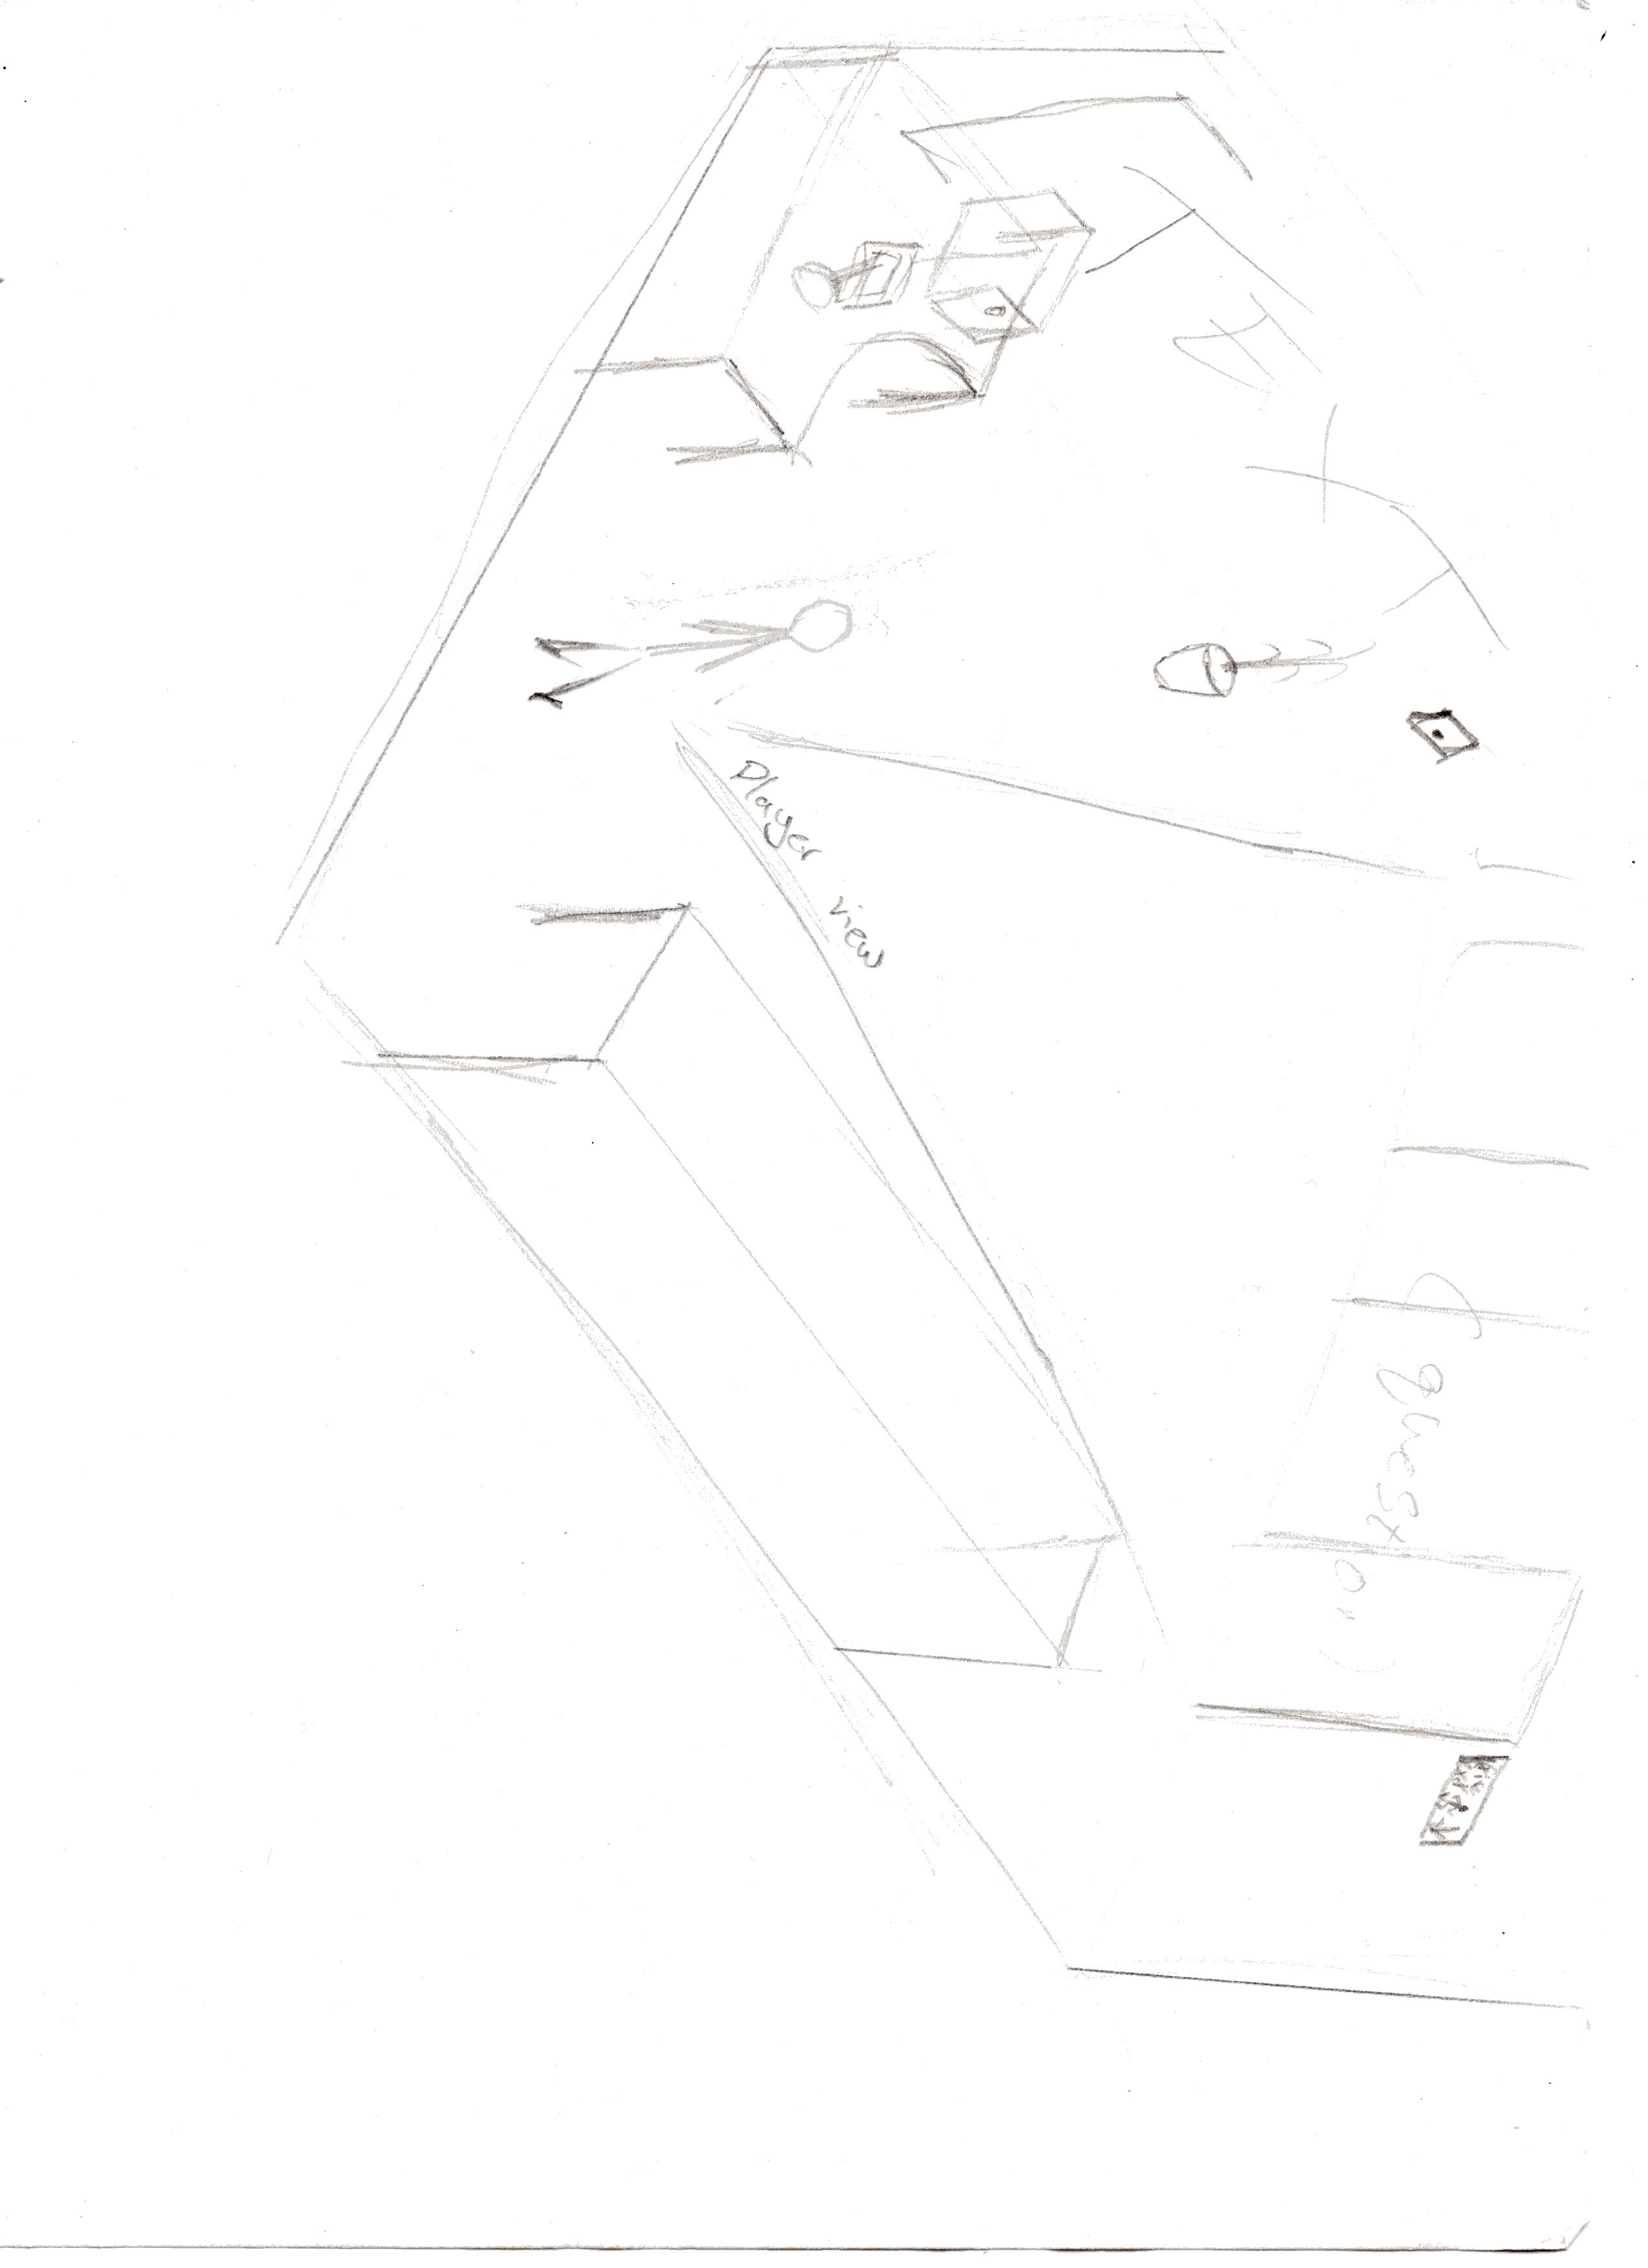 Fire
Exit
(question)
Player view